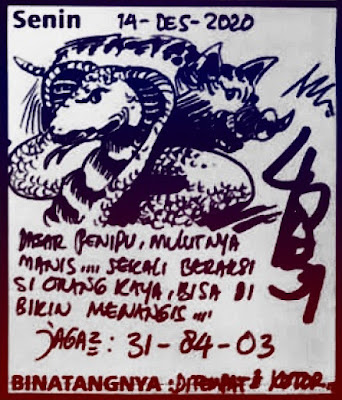 Senin 14-DES-2020
DASAR PENIPU, MULUTNYA
MANIS.... SEKALI BERAKSI
SI ORANG KAYA, BISA DI
BIKIN MENANGIS....
JAGA2 : 31-84-03
BINATANGNYA : DITEMPAT2 KOTOR...